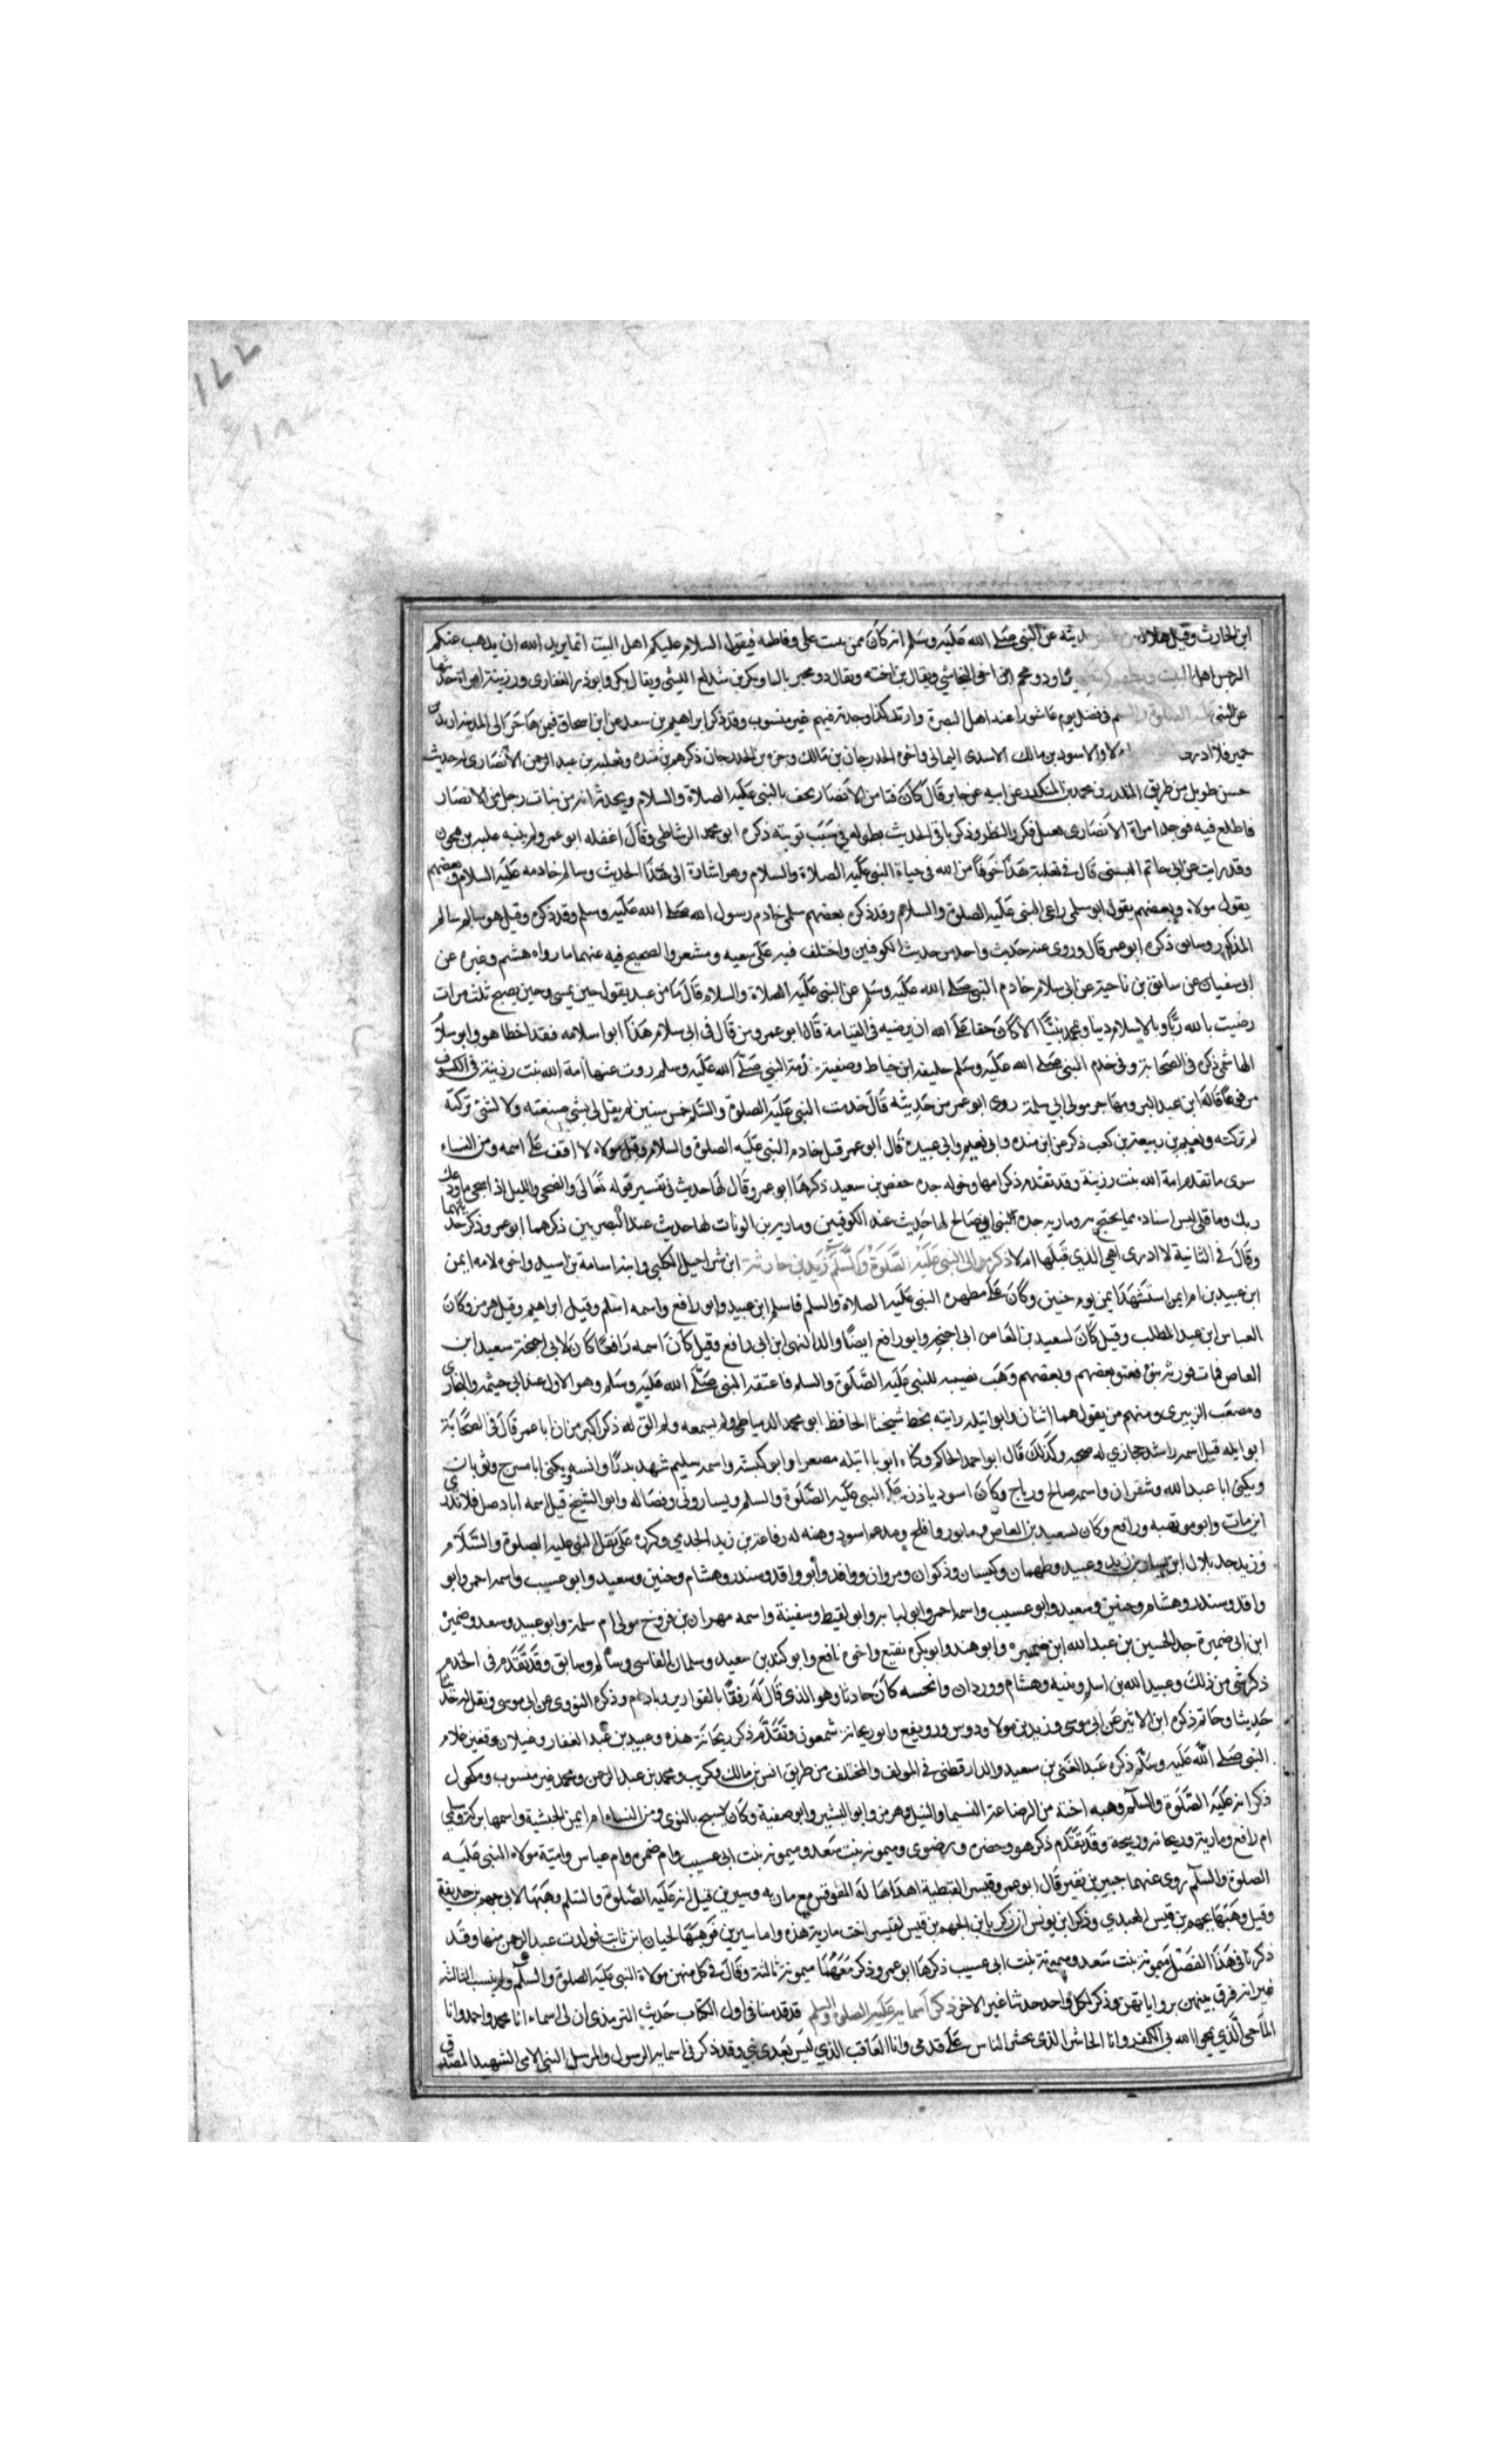 ١٧٧
ابن الحارث وقيل هلال حديثه عن النبي صلى الله عليه وسلم انه كان يمر ببيت علي وفاطمه فيقول السلام عليكم اهل البيت انما يريد الله ان يذهب عنكم
الرجس اهل البيت وذو مخمر ابن اخي النجاشي ويقال بن اخته ويقال ذو مخبر بالبا وبكر بن شداخ الليثي ويقال بكير وابوذر الغفاري ورزينة امراة حديثها
عن النبي عليه الصلوة والسلم في فضل يوم عاشورا عند اهل البصرة واربد كذا وجدته فيهم غير منسوب وقد ذكر ابراهيم بن سعد عن ابن اسحاق فيمن هاجر الى المدينة اربد بن
حمير فلا ادري ام لا والاسود بن مالك الاسدي اليماني واخوه الحدرجان بن مالك وجزء بن الحدرجان ذكرهم بن منده وثعلبة بن عبد الرحمن الانصاري له حديث
حسن طويل من طريق المنكدر بن محمد بن المنكدر عن ابيه عن جابر قال كان فتا من الانصار يحف بالنبي عليه الصلاة والسلام ويحدث انه مر بباب رجل من الانصار
فاطلع فيه فوجد امراة الانصاري تغتسل فكرر النظر وذكر باقي الحديث بطوله في سبب توبته ذكره ابو محمد الرشاطي وقال اغفله ابو عمر ولم ينبه عليه بن فتحون
وقد رايت عن ابي حاتم البستي قال في ثعلبة هذا خوفا من الله في حياة النبي عليه الصلاة والسلام وهو اشارة الى هذا الحديث وسالم خادمه عليه السلام وبعضهم
يقول مولاه وبعضهم يقول ابو سلمى راعي النبي عليه الصلوة والسلام وقد ذكره بعضهم سلمى خادم رسول الله صلى الله عليه وسلم وقد ذكره وقيل هو سالم سالم
المذكور وسابق ذكره ابو عمر قال وروى عنه حديث واحد من حديث الكوفيين واختلف فيه على شعبه ومسعر والصحيح فيه عنهما ما رواه هشيم وغيره عن
ابي سفيان عن سابق بن ناجية عن ابي سلام خادم النبي صلى الله عليه وسلم عن النبي عليه الصلاة والسلام قال ما من عبد يقول حين يمسي وحين يصبح ثلث مرات
رضيت بالله ربا وبالاسلام دينا وبمحمد نبيا الا كان حقا على الله ان يرضيه في القيامة قال ابو عمر ومن قال في ابي سلام هذا ابو اسلامه فقد اخطا هو وابو سلام
الهاشمي ذكره في الصحابة وفي خدم النبي صلى الله عليه وسلم خليفه ابن خياط وصفية خادمة النبي صلى الله عليه وسلم روت عنها امة الله بنت رزينة في الكسوف
مرفوعا قاله ابن عبد البر ومهاجر مولى ابي سلمة روى ابو عمر من حديثه قال خدمت النبي عليه الصلوة والسلم خمس سنين لم يقل لي لشي صنعته ولا لشئ تركته
لم تركته ونعيم بن ربيعة بن كعب ذكره عن ابن منده وابي نعيم وابي عبيدة قال ابو عمر قيل خادم النبي عليه الصلوة والسلام وقيل مولاه لا اقف على اسمه ومن النساء
سوى ما تقدم امة الله بنت رزينة وقد تقدم ذكر امها وخوله جدة حفص بن سعيد ذكرها ابو عمر وقال لها حديث في تفسير قوله تعالى والضحى والليل اذا سجى ما ودعك
ربك وما قلى ليس اسناده مما يحتج به وماريه جدة المثنى ابن صالح لها حديث عند الكوفيين وماريه بن الونات لها حديث عند البصريين ذكرهما ابو عمر وذكر حديثهما
وقال في الثانية لا ادري اهي الذي قبلها ام لا ذكر موالي النبي عليه الصلوة والسلم زيد بن حارثة ابن شراحيل الكلبي وابنه اسامة بن اسيد واخوه لامه ايمن
ابن عبيد بن ام ايمن استشهد ايمن يوم حنين وكان على مطهره النبي عليه الصلاة والسلم فاسلم ابن عبيد وابو رافع واسمه اسلم وقيل ابراهيم وقيل هرمز وكان
العباس ابن عبد المطلب وقيل كان لسعيد بن العاص ابي احيحه وابو رافع ايضا والد البهي ابن ابي رافع وقيل كان اسمه رافعا كان لابي احيحة سعيد ابن
العاص فمات فورثه بنوه فعتق بعضهم وبعضهم وهب نصيبه للنبي عليه الصلوة والسلم فاعتقه النبي صلى الله عليه وسلم وهو الاول عند ابي خيثمه والبخاري
ومصعب الزبيري ومنهم من يقول هما اثنان وابو اثيله رايته بخط شيخنا الحافظ ابو محمد الدمياطي ولم يسمعه ولم الق له ذكرا اكبر من ان ابا عمر قال في الصحابة
ابو اثيله قيل اسمه راشد حجازي له صحبه وكذلك قال ابو احمد الحاكم وكناه ابو با اثيله مصغرا وابو كبشه واسمه سليم شهد بدرا وانسه ويكنى ابا سرح وثوبان
ويكنى ابا عبد الله وشقران واسمه صالح ورباح وكان اسود ياذن على النبي عليه الصلوة والسلم ويسار نوبي وفضاله وابو الشيخ قيل اسمه
ابن مات وابو مويهبه ورافع وكان لسعيد بن العاص ومابور وافلح ومدعم اسود وهبه له رفاعة بن زيد الجذمي وكركرة على ثقل النبي عليه الصلوة والسلام
وزيد جد بلال ابن يسار بن زيد وعبيد وطهمان وكيسان وذكوان ومروان وواقد وابو واقد وسندر وهشام وحنين وسعيد وابو عسيب واسمه احمر وابو
واقد وسندر وهشام وحنين وسعيد وابو عسيب واسمه احمر وابو لبابه وابو لقيط وسفينة واسمه مهران بن فروخ مولى ام سلمة وابو عبيد وسعد وضميرة
ابن ابي ضميرة جد الحسين بن عبد الله ابن ضميره وابو هند وابو بكره نفيع واخوه نافع وابو كندير سعيد وسلمان الفارسي وسالم وسابق وقد تقدم في الخدم
ذكر شي من ذلك وعبيد الله بن اسلم ونبيه وهشام ووردان وانجشه كان حاديا وهو الذي قال له رفقا بالقوارير وباذام وذكره النووي عن ابي موسى ونقل له حديثا
حديثا وحاتم ذكره ابن الاثير عن ابي موسى وزيد بن مولا ودوس ورويفع وابو ريحانة شمعون وتقدم ذكر ريحانة هذه وعبيد بن عبد الغفار وغيلان وقفيز غلام
النبي صلى الله عليه وسلم ذكره عبد الغني بن سعيد والدارقطني في المولف والمختلف من طريق انس بن مالك وكريب ومحمد بن عبد الرحمن ومحمد غير منسوب ومكحول
ذكر انه عليه الصلوة والسلم وهبه اخته من الرضاعة الشيما والنبيل وهرمز وابو البشير وابو صفية وكان يسبح بالنوى ومن النساء ام ايمن الحبشية واسمها بركة وسلمى
ام رافع ومارية وريحانة وربيحة وقد تقدم ذكرهن وخضره ورضوى وميمونه بنت سعد وميمونه بنت ابي عسيب وام ضمره وام عياس واميّة مولاة النبي عليه
الصلوة والسلم روى عنهما جبير بن نفير قال ابو عمر وقيسر القبطية اهداها له المقوقس مع ماريه وسيرين قيل انه عليه الصلوة والسلم وهبها لابي جهم بن حذيفة
وقيل وهبها لجهم بن قيس العبدي وذكر ابن يونس ان زكريا بن الجهم بن قيس لقيسر اخت مارية هذه واما سيرين فوهبها لحسان ابن ثابت فولدت عبد الرحمن منها وقد
ذكرنا في هذا الفصل ميمونة بنت سعد وميمونة بنت ابي عسيب ذكرها ابو عمر وذكر معهما ميمونة ثالثة وقال في كل منهن مولاة النبي عليه الصلوة والسلم ولم ينسب الثالثة
غير انه فرق بينهن بروايتهن وذكر لكل واحد حديثا غير الاخر ذكر اسمايه عليه الصلوة والسلم قد قدمنا في اول الكتاب حديث الترمذي ان لي اسماء انا محمد واحمد وانا
الماحي الذي يمحي الله بي الكفر وانا الحاشر الذي يحشر الناس على قدمي وانا العاقب الذي ليس بعدي نبي وقد ذكر في اسمايه الرسول والمرسل النبي الامي الشهيد المصدق